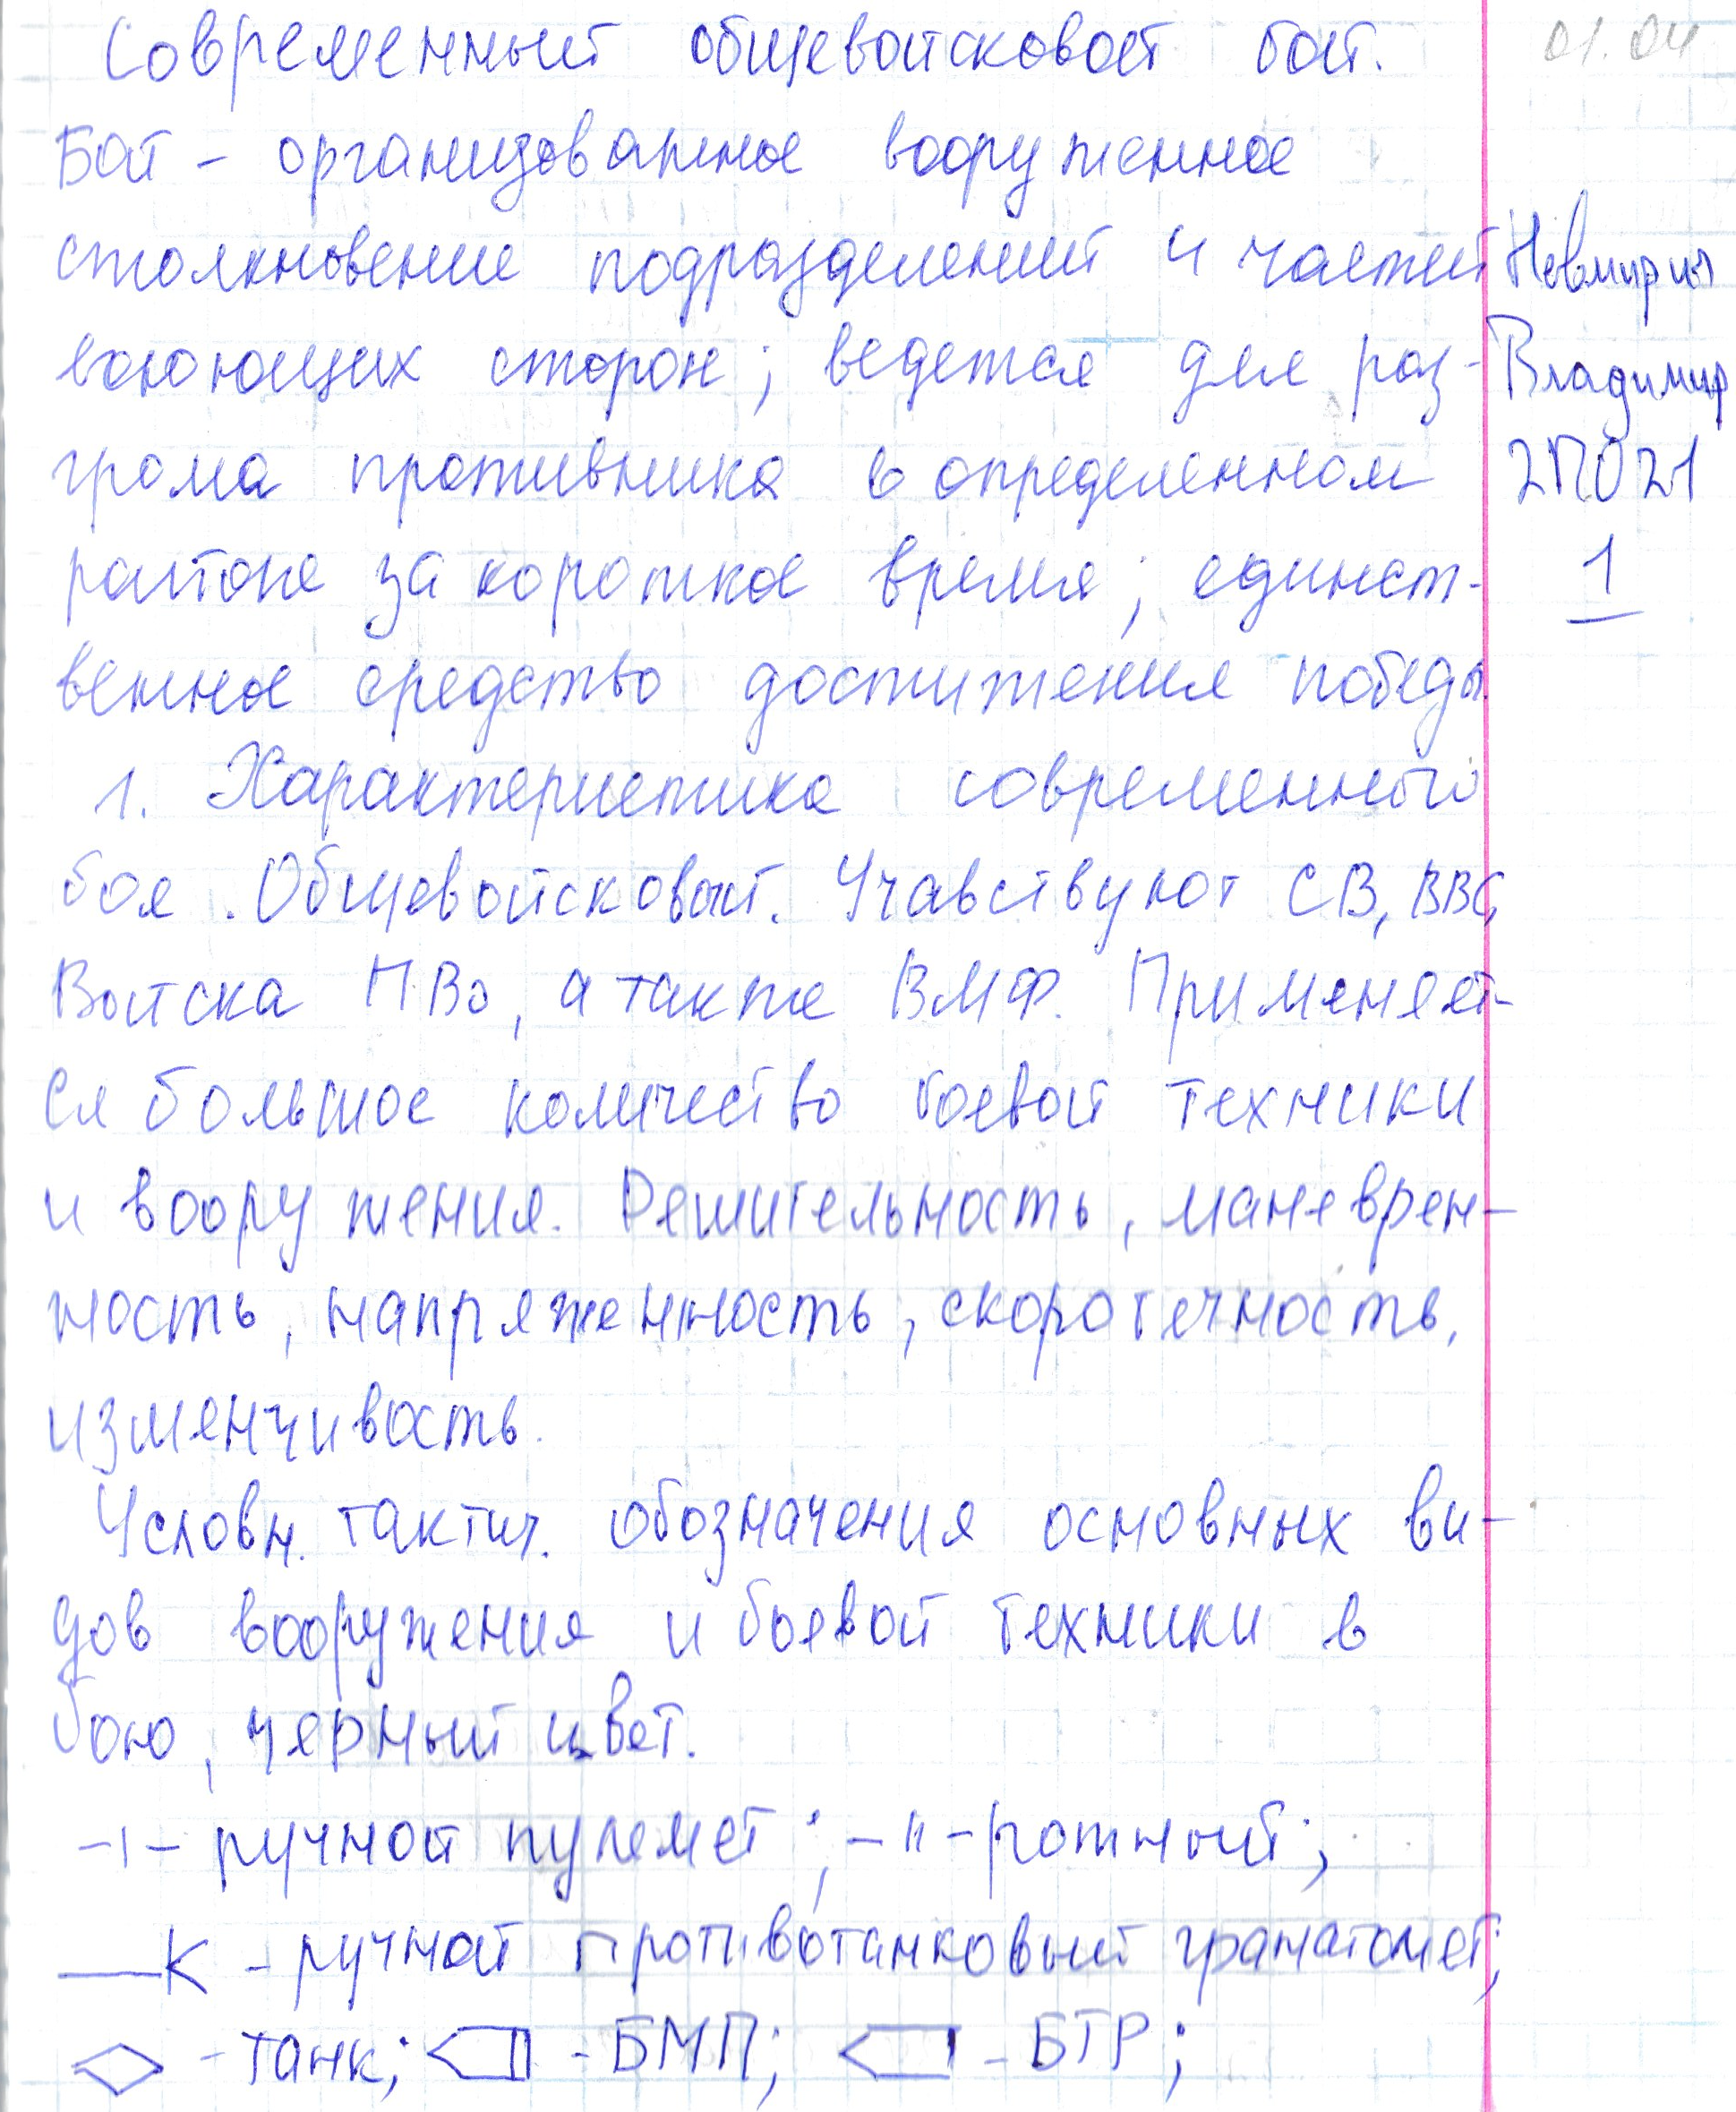 Современный общевойсковой бой.
01.04
Бой - организованное вооруженное
столкновение подразделений и частей
воюющих сторон; ведется для раз-
грома противника в определенном
районе за короткое время; единст-
венное средство достижения победы.
1. Характеристика современного
боя. Общевойсковый. Учавствуют СВ, ВВС,
Войска ПВО, а также ВМФ. Применяет-
ся большое количество боевой техники
и вооружения. Решительность, маневрен-
ность, напряженность, скоротечность,
изменчивость.
Условн. тактич. обозначения основных ви-
дов вооружения и боевой техники в
бою, черный цвет.
-ı- ручной пулемет; -ıı- ротный;
—К - ручной противотанковый гранатомет;
- танк; - БМП; - БТР;
Владимир
2П021
1